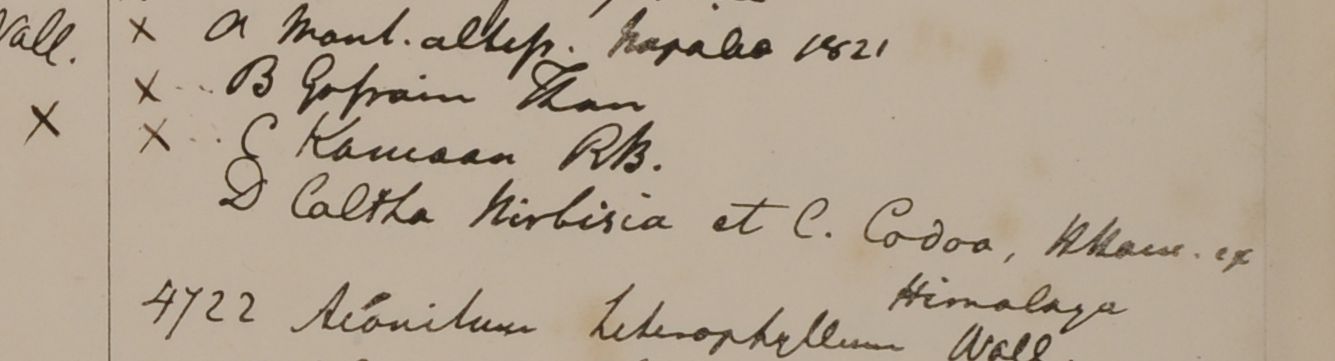 Wall.
× a Mont. altiss. Napalia 1821
× B Gossain Than
× × C Kamaon RB.
D Caltha Nirbisia et C. Codoa, HHam. ex
Himalaya
4722 Aconitum heterophyllum Wall.